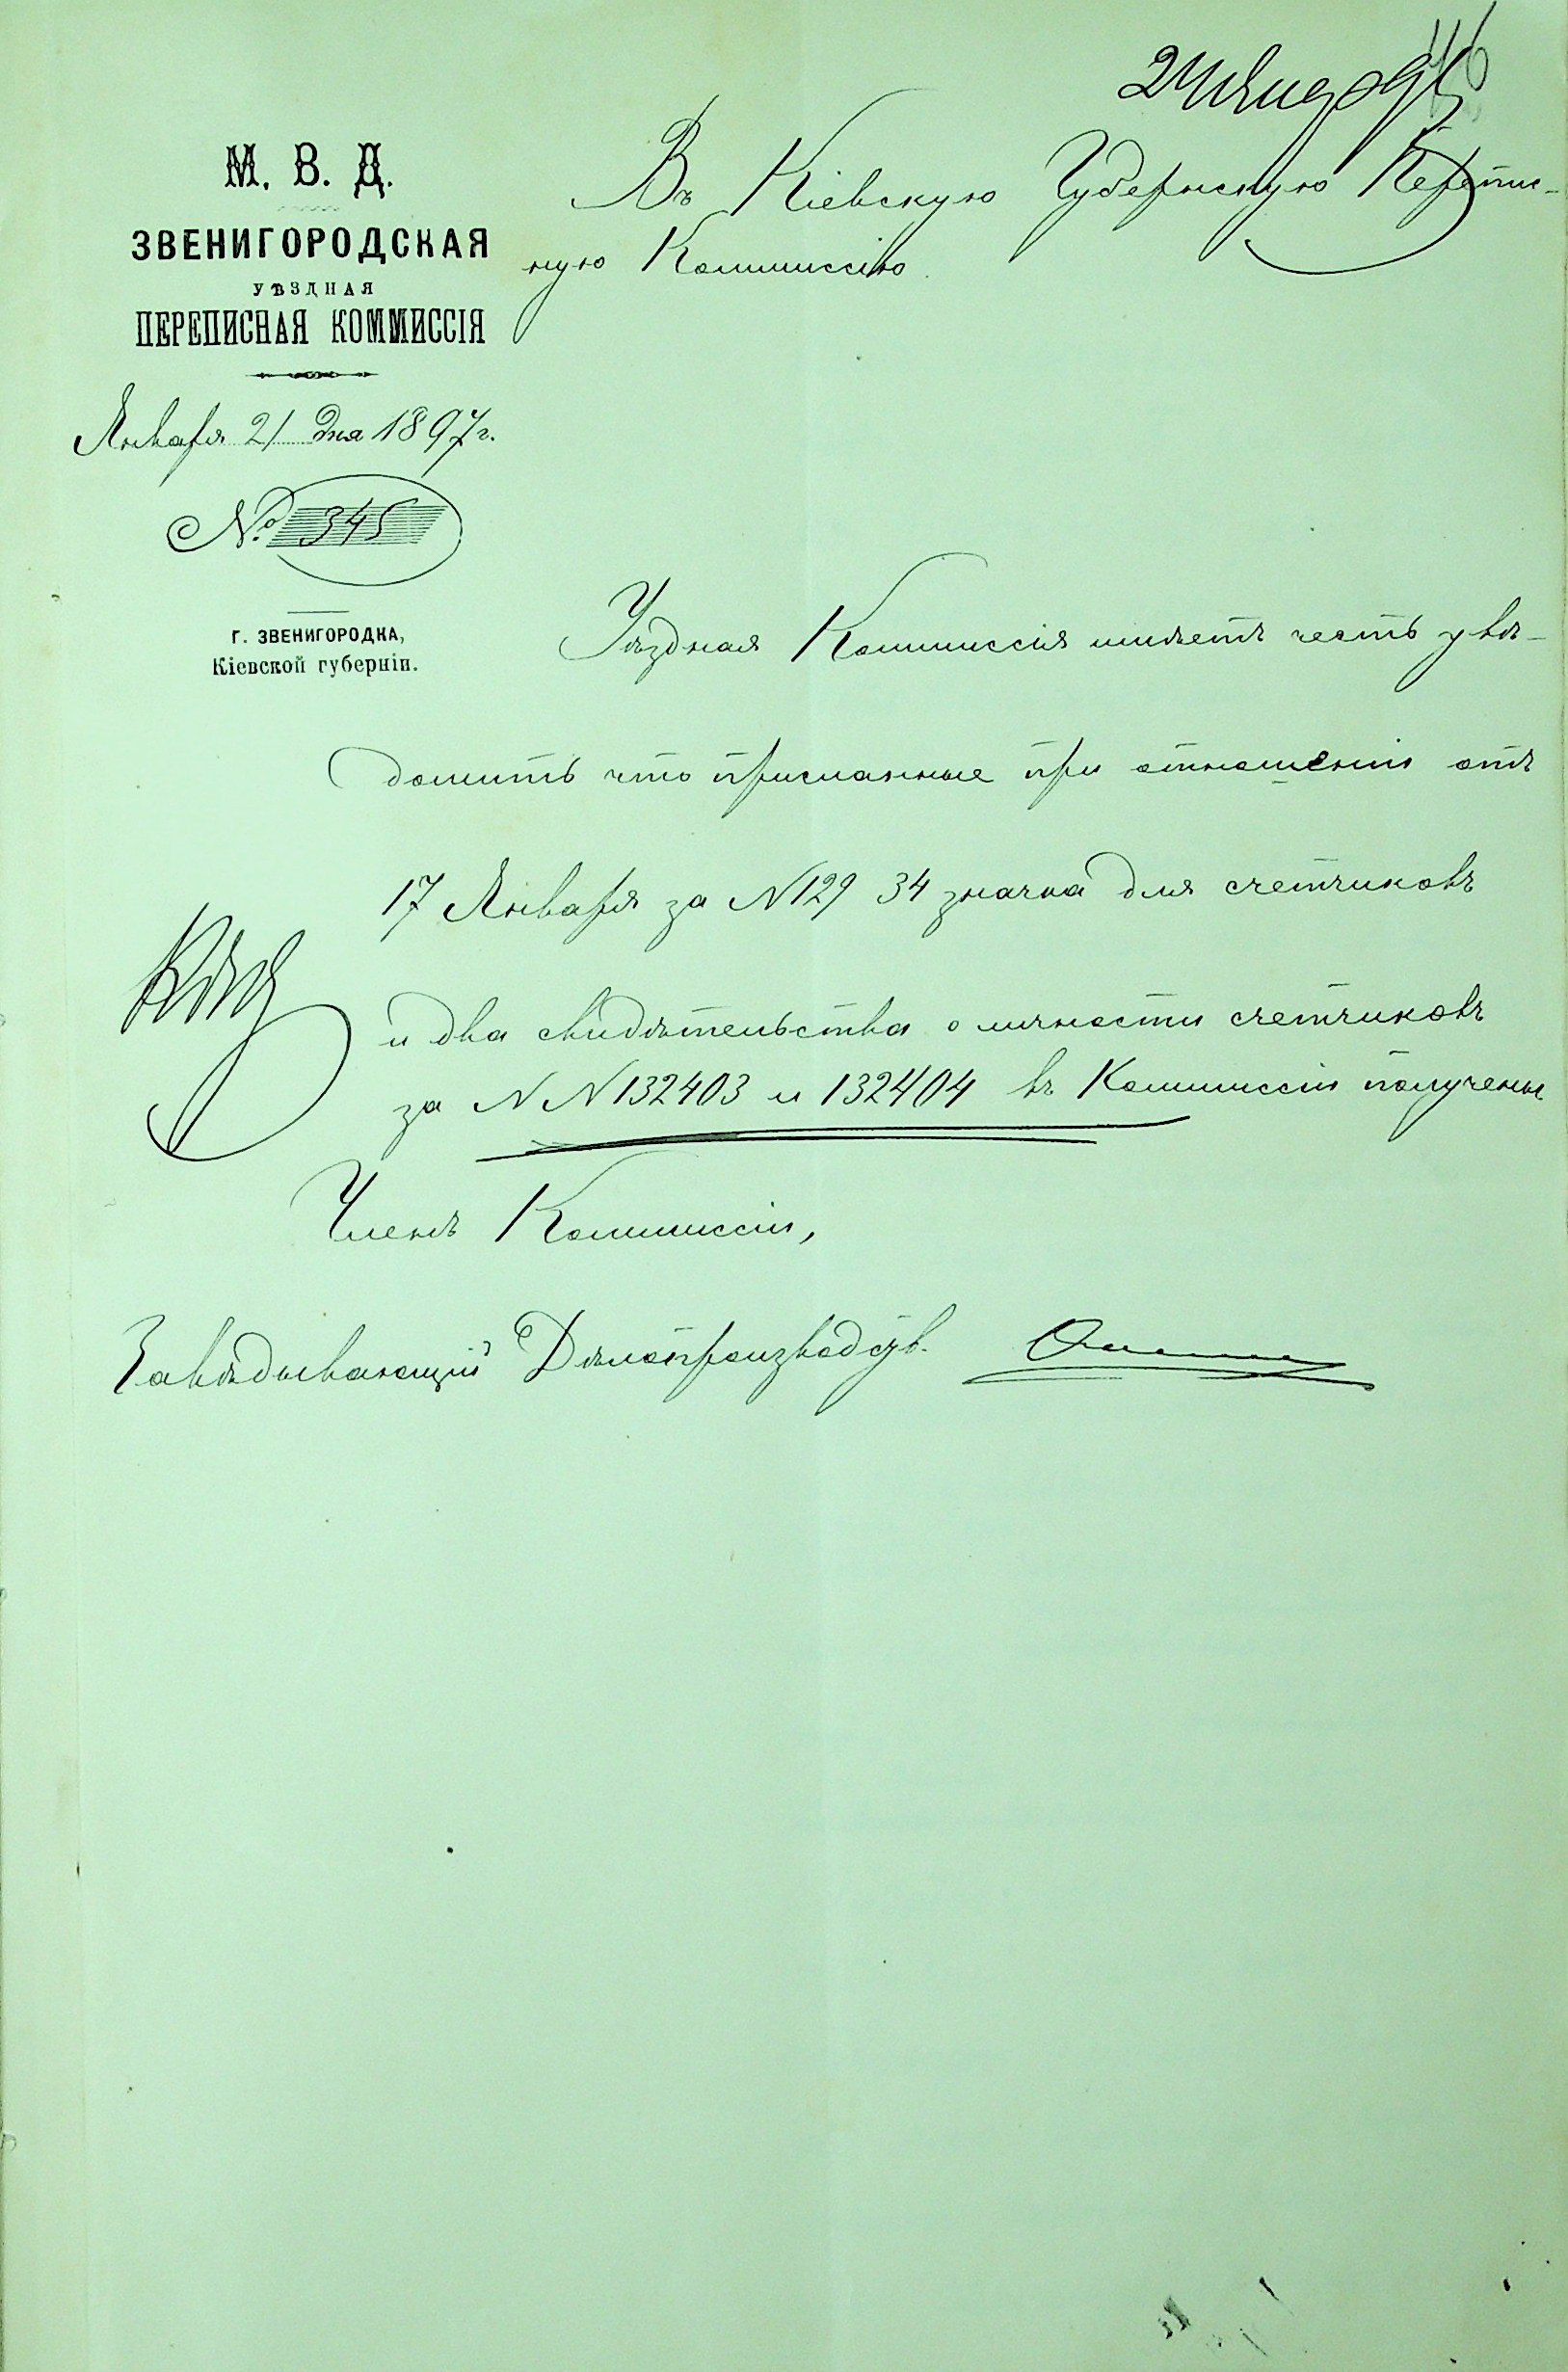 М. В. Д.
ЗВЕНИГОРОДСКАЯ
УѢЗДНАЯ
ПЕРЕПИСНАЯ КОММИССІЯ
Января 21 дня 1897 г.
№ 345
Г. ЗВЕНИГОРОДКА,
Кіевской губерніи.
Въ Кіевскую Губернскую Перепис-
ную Коммиссію.
Уѣздная Коммиссія имѣетъ честь увѣ-
домить что присланные при отношеніи отъ
17 Января за N 129 34 значка для счетчиковъ
и два свидѣтельства о личности счетчиковъ
за N N 132403 и 132404 въ Коммиссіи получены
Членъ Коммиссіи,
Завѣдывающій Дѣлопроизводств.